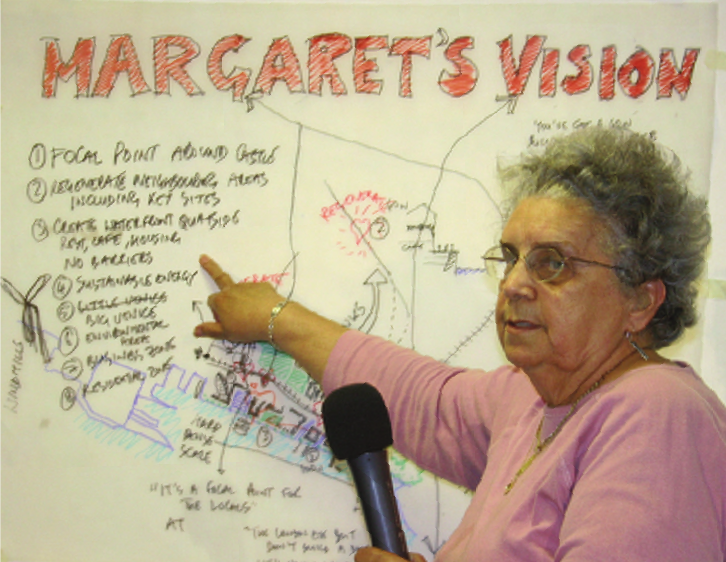 MARGARET'S VISION
① FOCAL POINT AROUND CASTLE
② REGENERATE NEIGHBOURING AREAS
INCLUDING KEY SITES
③ CREATE WATERFRONT QUAYSIDE
REST, CAFE, HOUSING
NO BARRIERS
④ SUSTAINABLE ENERGY
⑤ LITTLE VENICE
BIG VENICE
⑥ ENVIRONMENTAL
AREA
⑦ BUSINESS ZONE
⑧ RESIDENTIAL ZONE
WINDMILLS
"YOU'VE GOT A
REGENERATE
②
③
SCALE
"IT'S A FOCAL POINT FOR
THE LOCALS"
AT
"THE LONDON EYE BUT
DON'T BUILD A